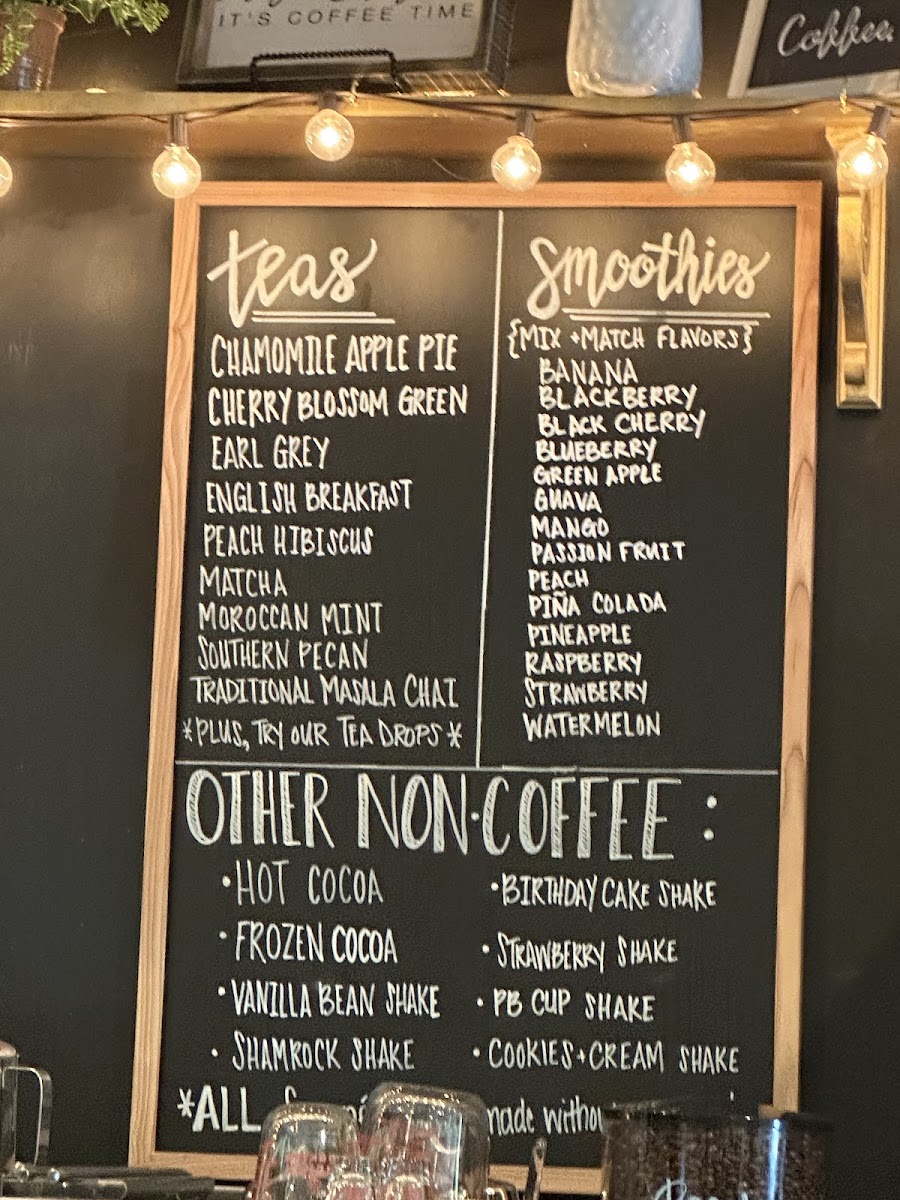 IT'S COFFEE TIME
Coffee.
teas
CHAMOMILE APPLE PIE
CHERRY BLOSSOM GREEN
EARL GREY
ENGLISH BREAKFAST
PEACH HIBISCUS
MATCHA
MOROCCAN MINT
SOUTHERN PECAN
TRADITIONAL MASALA CHAI
*PLUS, TRY OUR TEA DROPS*
Smoothies
{MIX + MATCH FLAVORS}
BANANA
BLACKBERRY
BLACK CHERRY
BLUEBERRY
GREEN APPLE
GUAVA
MANGO
PASSION FRUIT
PEACH
PIÑA COLADA
PINEAPPLE
RASPBERRY
STRAWBERRY
WATERMELON
OTHER NON-COFFEE:
•HOT COCOA
•FROZEN COCOA
•VANILLA BEAN SHAKE
•SHAMROCK SHAKE
•BIRTHDAY CAKE SHAKE
•STRAWBERRY SHAKE
•PB CUP SHAKE
•COOKIES+CREAM SHAKE
*ALL made without